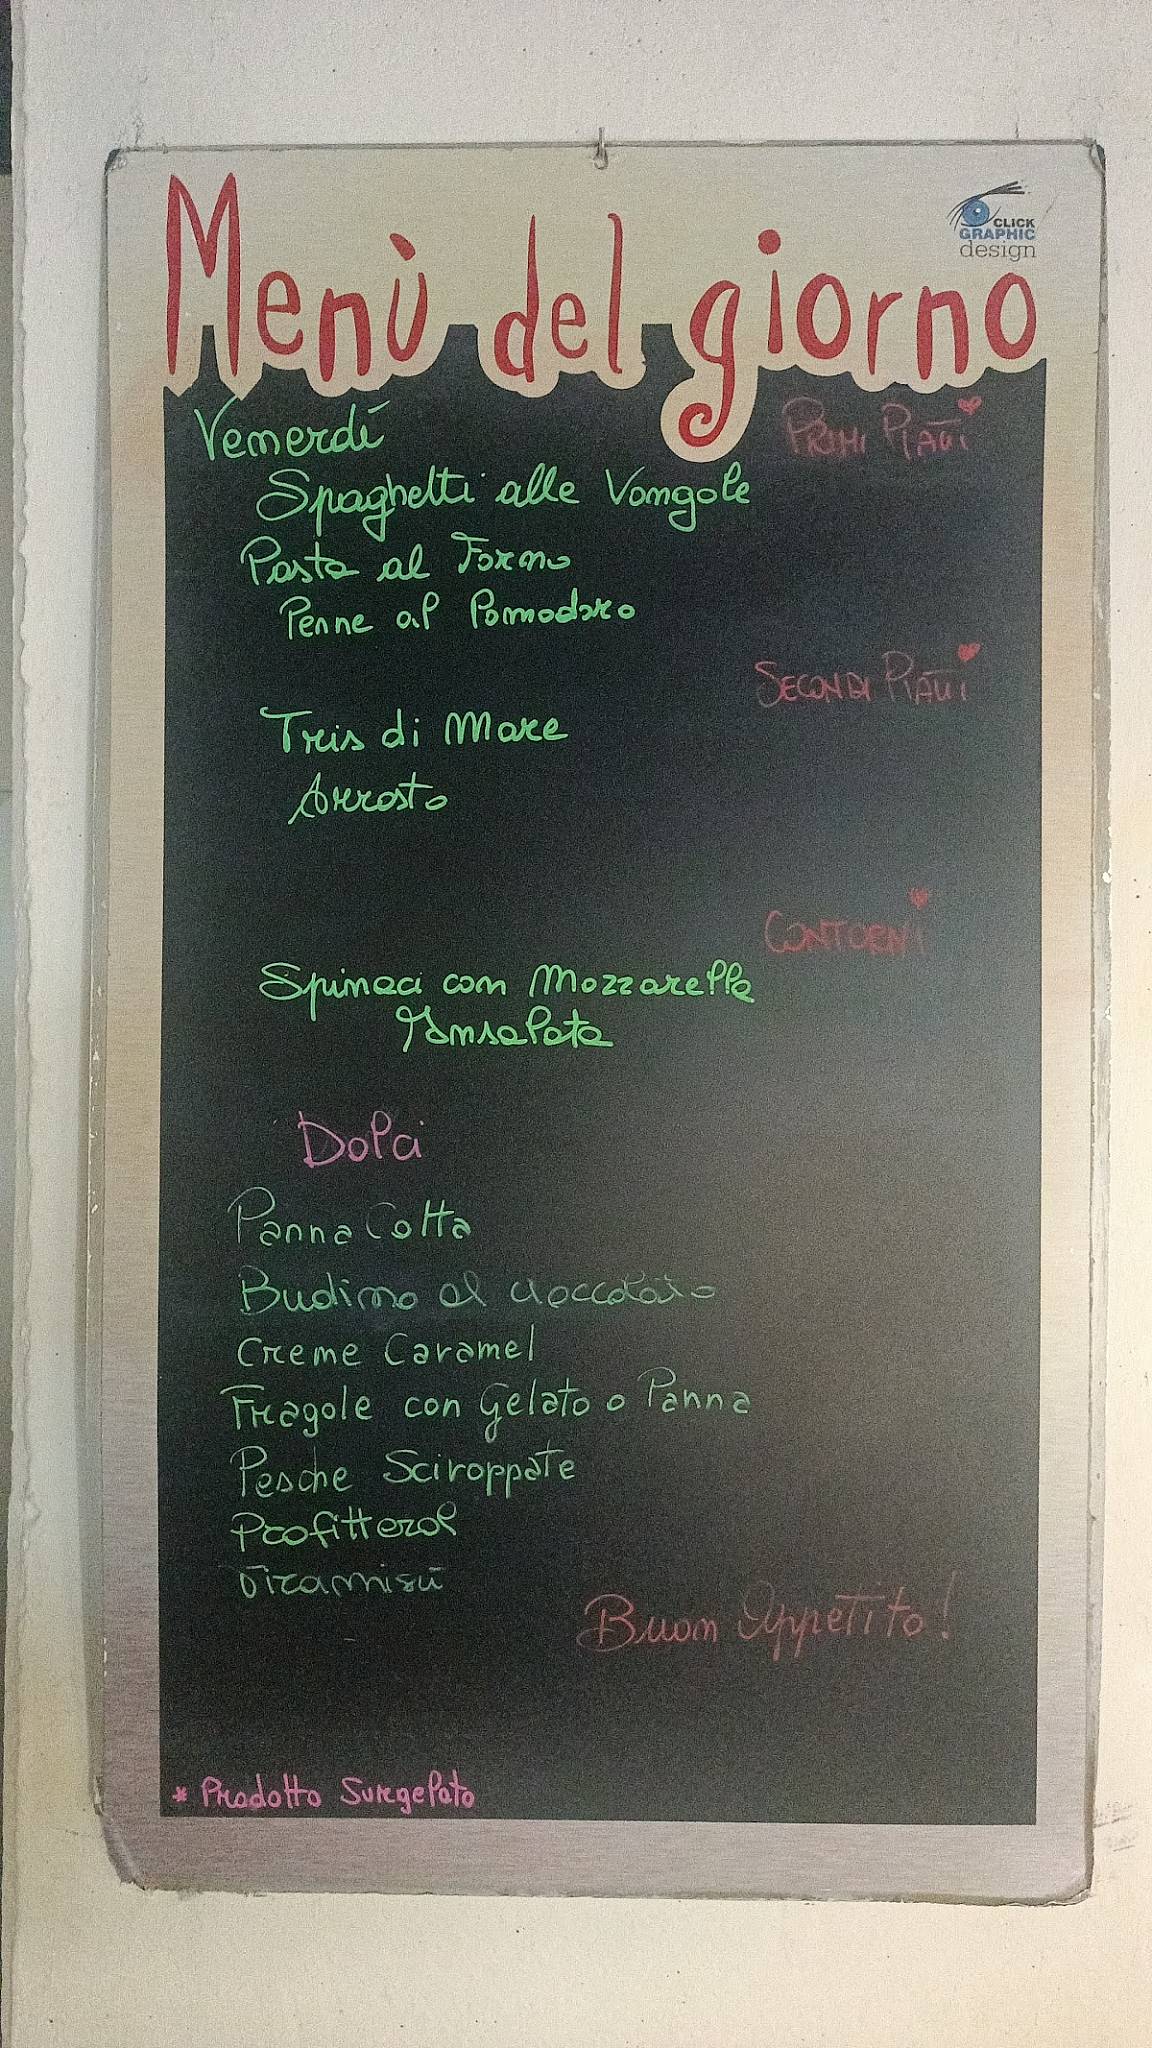 CLICK
GRAPHIC
design
Menù del giorno
Venerdí
PRIMI PIATTI
Spaghetti alle Vongole
Pasta al Forno
Penne al Pomodoro
SECONDI PIATTI
Tris di Mare
Arrosto
CONTORNI
Spinaci con Mozzarella
Insalata
Dolci
Panna Cotta
Budino al cioccolato
Creme Caramel
Fragole con Gelato o Panna
Pesche Sciroppate
Profitterol
Tiramisú
Buon Appetito!
* Prodotto Surgelato